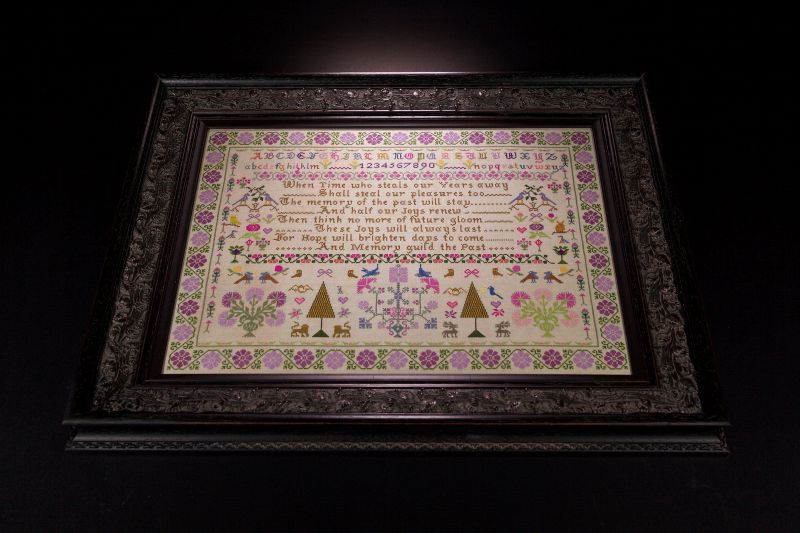 ABCDEFGHIJKLMNOPQRSTUVWXYZ
abcdefghijklm 1234567890 nopqrstuvwxyz
When Time who steals our Years away
Shall steal our pleasures too
The memory of the past will stay
And half our Joys renew
Then think no more of future gloom
These Joys will always last
For Hope will brighten days to come
And Memory guild the Past